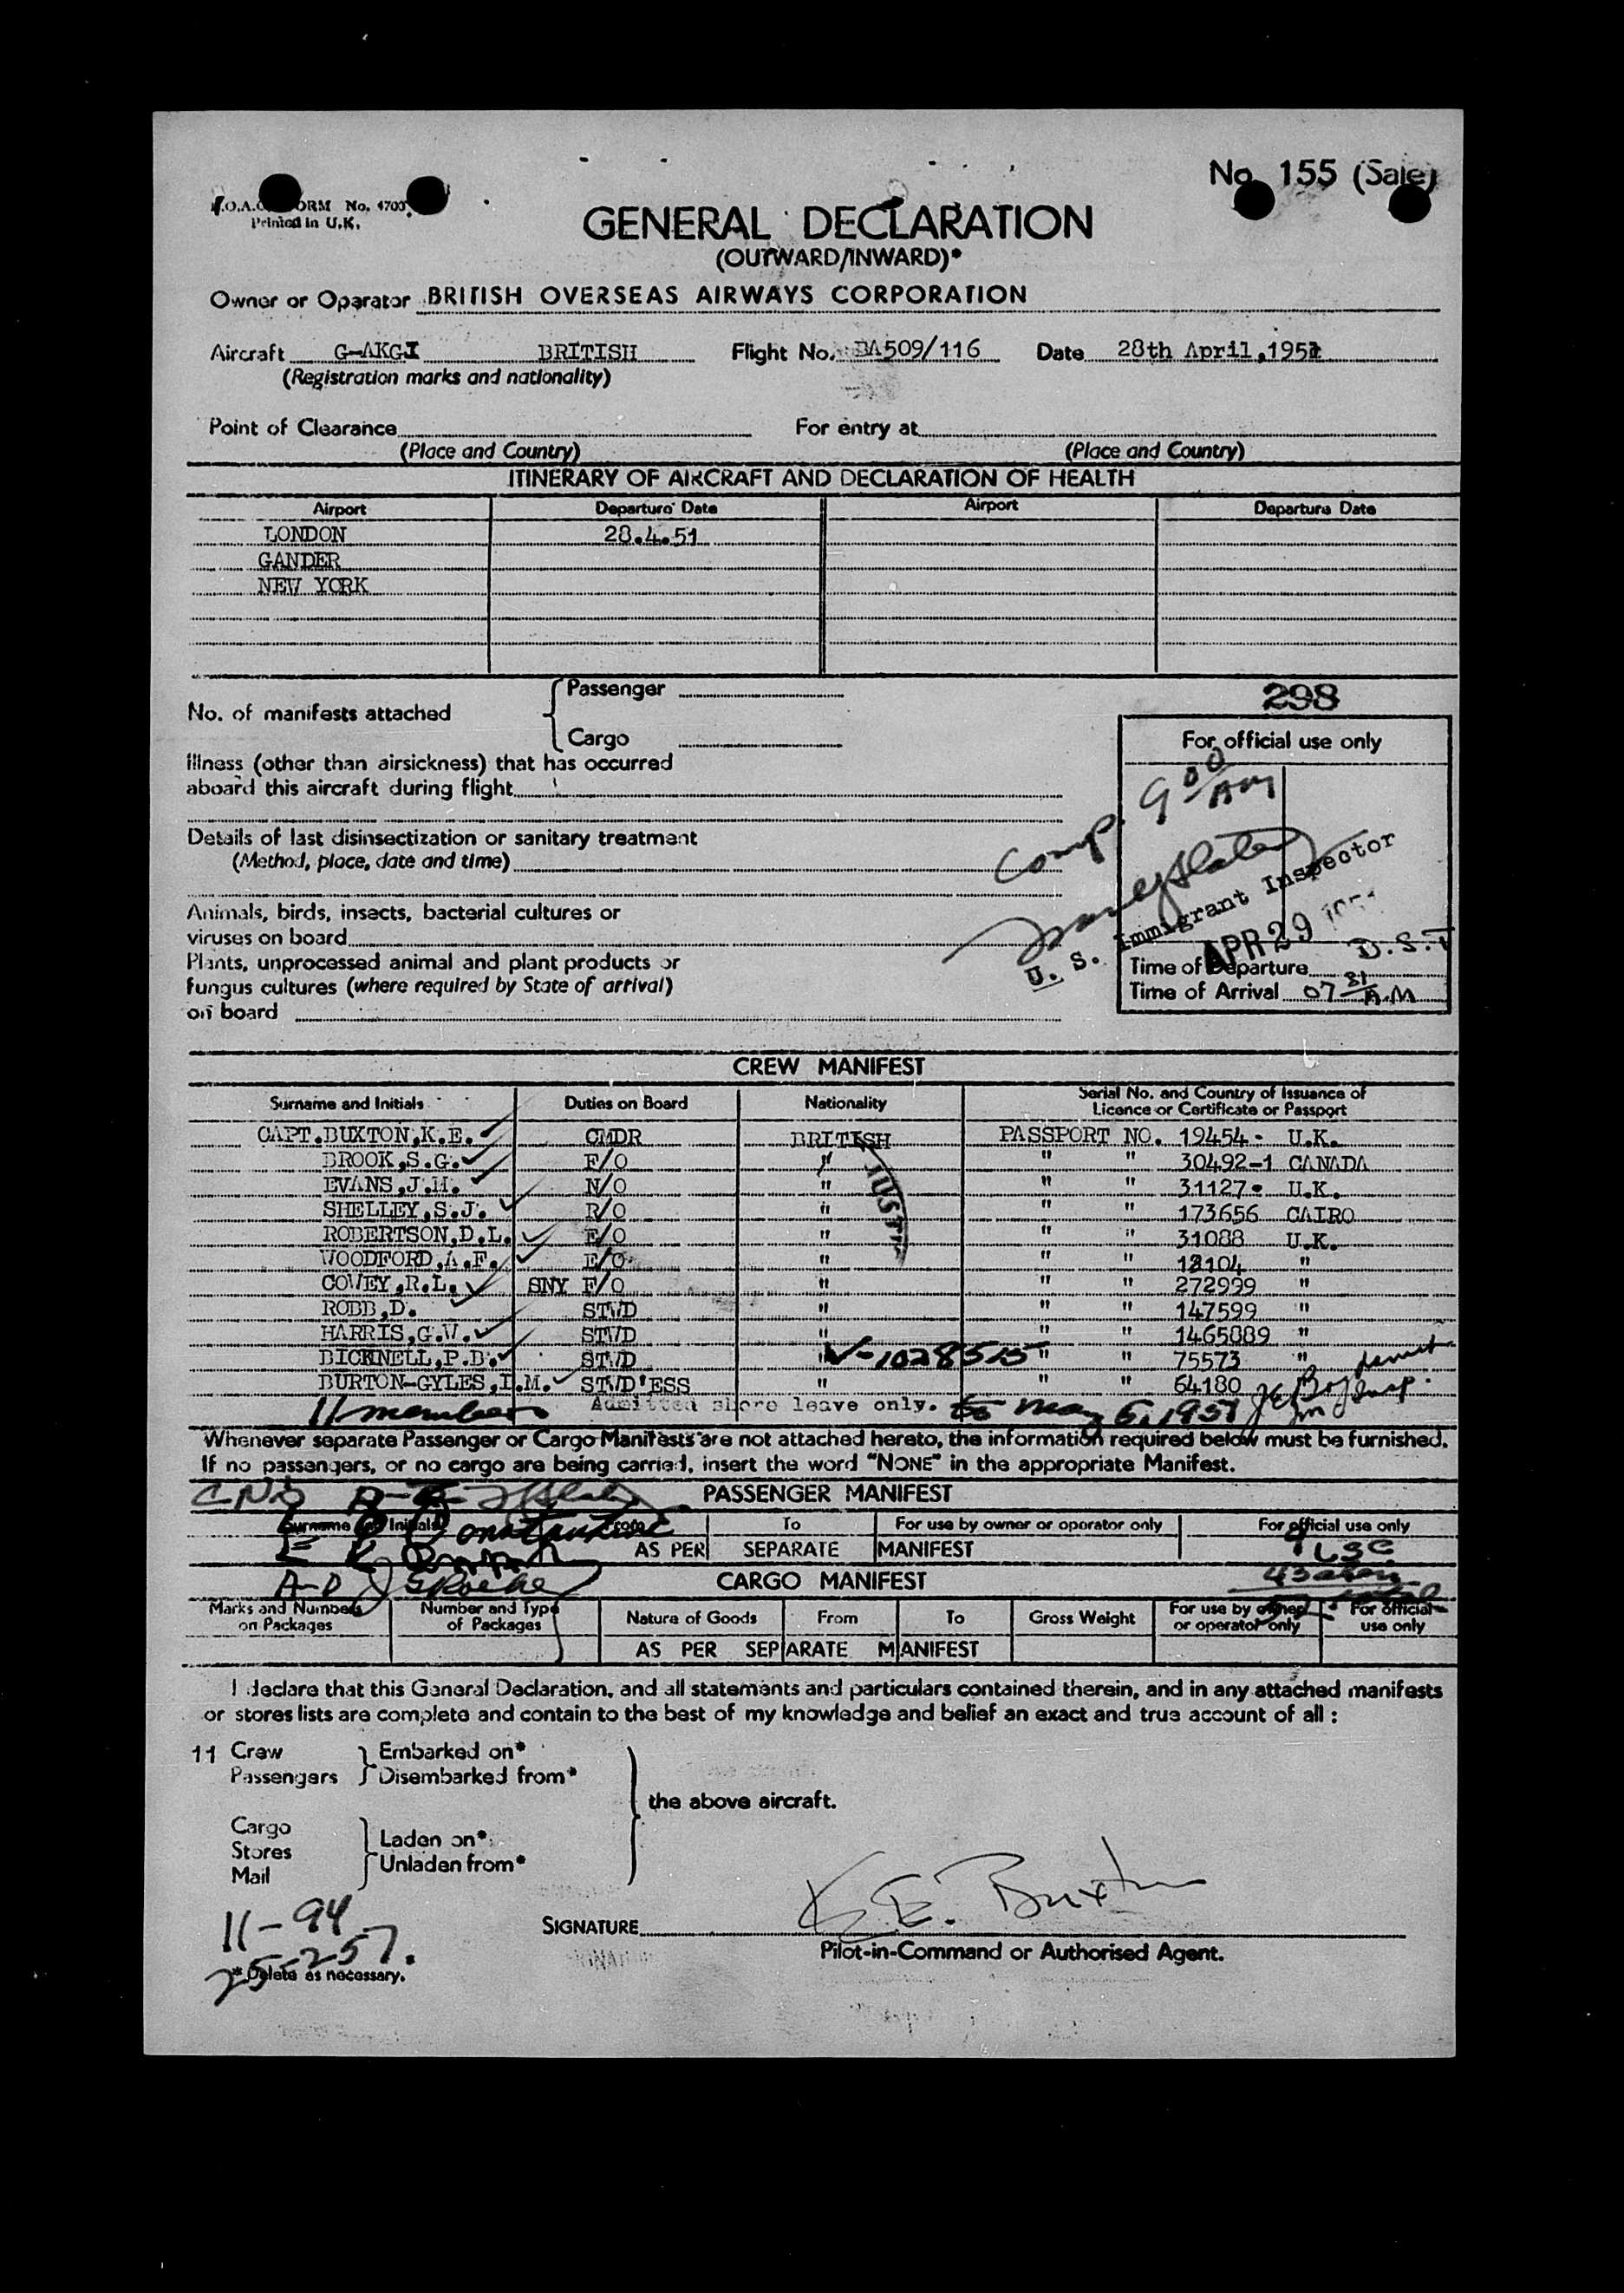 No. 155 (Sale)
FORM No. 4703
Printed in U.K.
GENERAL DECLARATION
(OUTWARD/INWARD)*
Owner or Operator BRITISH OVERSEAS AIRWAYS CORPORATION
Aircraft G-AKGI BRITISH Flight No. BA509/116 Date 28th April,1951
(Registration marks and nationality)
Point of Clearance For entry at
(Place and Country) (Place and Country)
ITINERARY OF AIRCRAFT AND DECLARATION OF HEALTH
Airport Departure Date Airport Departure Date
LONDON 28.4.51
GANDER
NEW YORK
No. of manifests attached { Passenger
Cargo
298
For official use only
Illness (other than airsickness) that has occurred
aboard this aircraft during flight
Comp. 9 00 AM
Details of last disinsectization or sanitary treatment
(Method, place, date and time)
U. S. Immigrant Inspector
Animals, birds, insects, bacterial cultures or
viruses on board
APR 29
D.S.T
Plants, unprocessed animal and plant products or
fungus cultures (where required by State of arrival)
on board
Time of Departure
Time of Arrival 07 31 A.M
CREW MANIFEST
Surname and Initials Duties on Board Nationality Serial No. and Country of Issuance of Licence or Certificate or Passport
CAPT.BUXTON,K.E. CMDR BRITISH PASSPORT NO. 19454. U.K.
BROOK,S.G. F/O " " " 30492-1 CANADA
EVANS,J.H. N/O " " " 31127. U.K.
SHELLEY,S.J. R/O " " " 173656 CAIRO
ROBERTSON,D.L. E/O " " " 31088 U.K.
WOODFORD,A.F. E/O " " " 12104 "
COVEY,R.L. SNY F/O " " " 272999 "
ROBB,D. STWD " " " 147599 "
HARRIS,G.W. STWD " " " 1465889 "
BICKNELL,P.B. STWD " V-1028515 " " 75573 "
BURTON-GYLES,I.M. STWD'ESS " " " 64180
11 members Admitted shore leave only. to May 6, 1951
Whenever separate Passenger or Cargo Manifests are not attached hereto, the information required below must be furnished.
If no passengers, or no cargo are being carried, insert the word "NONE" in the appropriate Manifest.
PASSENGER MANIFEST
Surname and Initials From To For use by owner or operator only For official use only
AS PER SEPARATE MANIFEST
9 USC
CARGO MANIFEST
Marks and Numbers on Packages Number and Type of Packages Nature of Goods From To Gross Weight For use by owner or operator only For official use only
AS PER SEPARATE MANIFEST
I declare that this General Declaration, and all statements and particulars contained therein, and in any attached manifests
or stores lists are complete and contain to the best of my knowledge and belief an exact and true account of all :
11 Crew } Embarked on*
Passengers } Disembarked from*
the above aircraft.
Cargo
Stores } Laden on*
Mail } Unladen from*
11-94
25-257.
SIGNATURE K. E. Buxton
Pilot-in-Command or Authorised Agent.
* Delete as necessary.